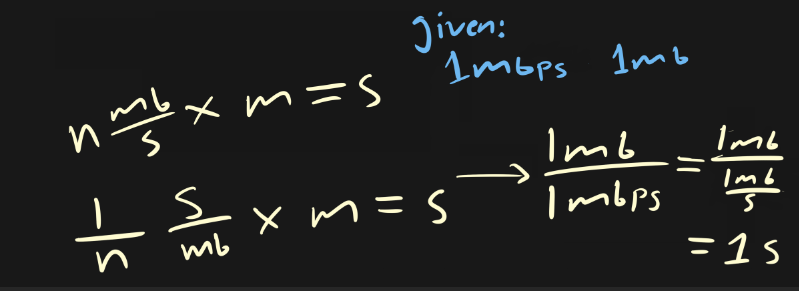 given:
1mbps 1mb
n mb/s × m = s
1/n s/mb × m = s → 1mb/1mbps = 1mb/(1mb/s)
= 1 s